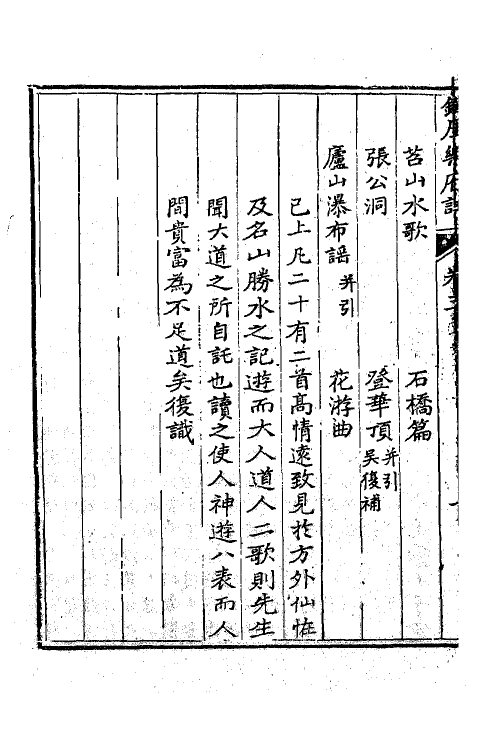 苕山水歌　石橋篇
張公洞　登華頂并引吳復補
廬山瀑布謡并引　花游曲
已上凡二十有二首髙情遠致見扵方外仙恠
及名山勝水之記遊而大人道人二歌則先生
聞大道之所自託也讀之使人神遊八表而人
間貴富為不足道矣復識